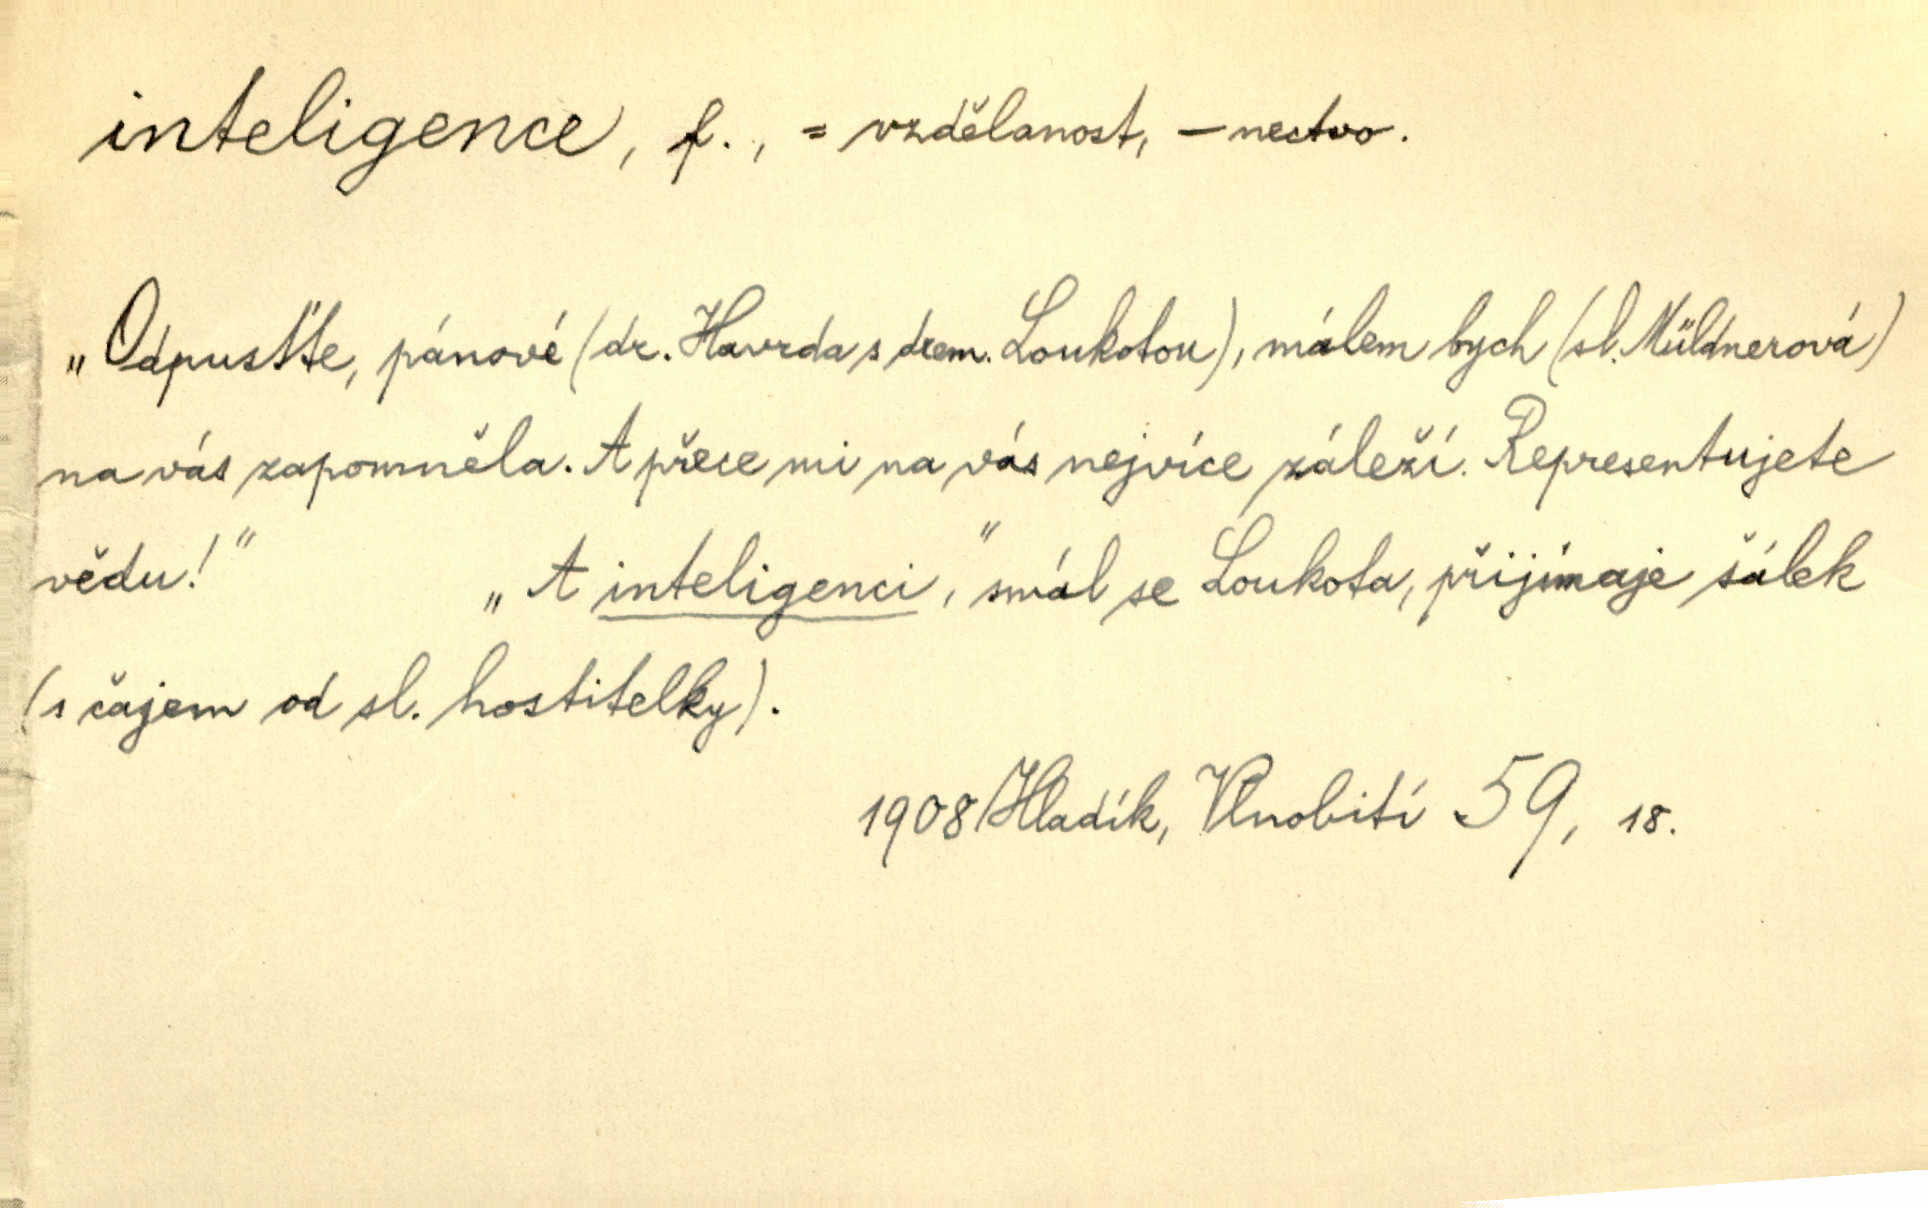 inteligence, f., = vzdělanost, – nectvo.
„Odpusťte, pánové (dr. Havrda s drem. Loukotou), málem bych (sl. Müldnerová)
na vás zapomněla. A přece mi na vás nejvíce záleží. Representujete
vědu!" „A inteligenci," smál se Loukota, přijímaje šálek
(s čajem od sl. hostitelky).
1908 Hladík, Vlnobití 59, 18.